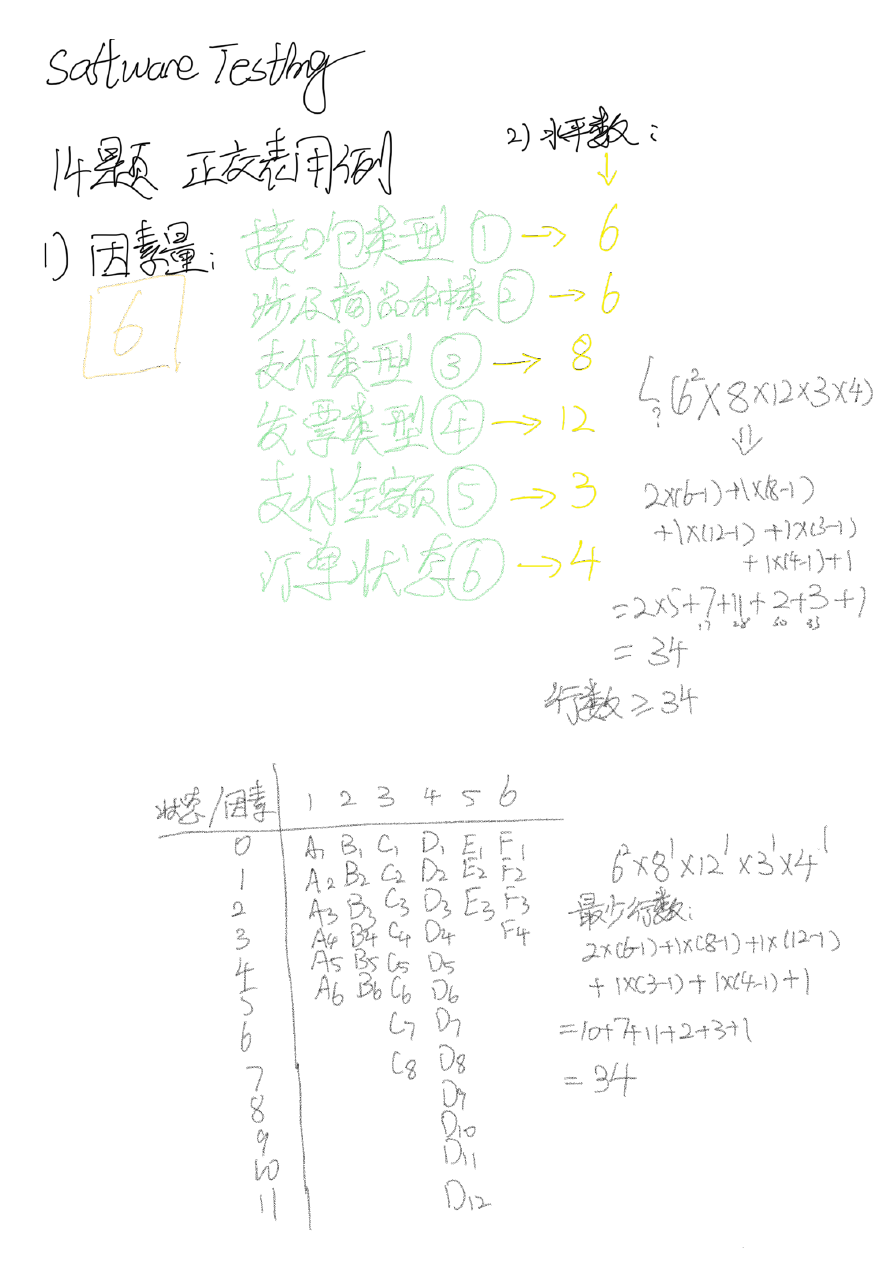 Software Testing
14题 正交表用例
1) 因素量:
6
2) 水平数:
↓
接口包类型 ① → 6
涉及商品种类 ② → 6
支付类型 ③ → 8
发票类型 ④ → 12
支付金额 ⑤ → 3
订单状态 ⑥ → 4
L? (6²×8×12×3×4)
⇓
2×(6-1)+1×(8-1)
+1×(12-1)+1×(3-1)
+1×(4-1)+1
=2×5+7+11+2+3+1
17 28 30 33
= 34
行数 ≥ 34
状态/因素 1 2 3 4 5 6
0 A1 B1 C1 D1 E1 F1
1 A2 B2 C2 D2 E2 F2
2 A3 B3 C3 D3 E3 F3
3 A4 B4 C4 D4 F4
4 A5 B5 C5 D5
5 A6 B6 C6 D6
6 C7 D7
7 C8 D8
8 D9
9 D10
10 D11
11 D12
6²×8¹×12¹×3¹×4¹
最少行数:
2×(6-1)+1×(8-1)+1×(12-1)
+1×(3-1)+1×(4-1)+1
=10+7+11+2+3+1
= 34